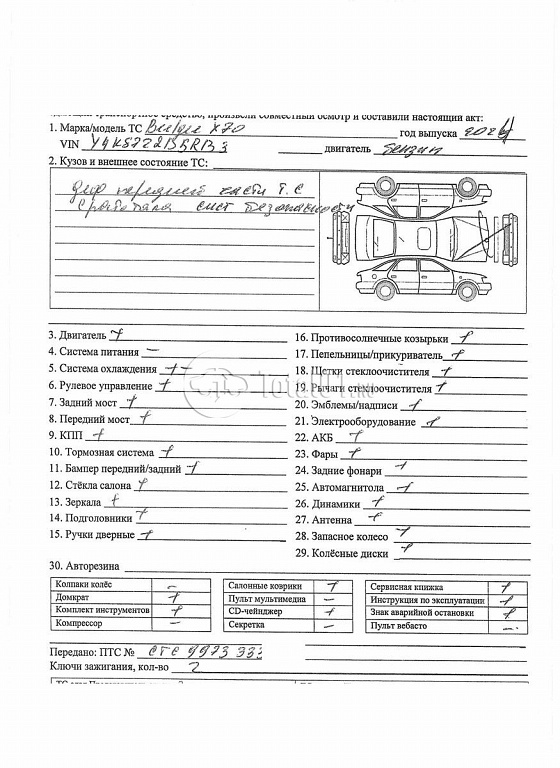 1. Марка/модель ТС Belgee X70 год выпуска 2024
VIN двигатель бензин
2. Кузов и внешнее состояние ТС:
деф передней части Т.С
сработала сист безопасности
3. Двигатель +
4. Система питания —
5. Система охлаждения +
6. Рулевое управление +
7. Задний мост +
8. Передний мост +
9. КПП +
10. Тормозная система +
11. Бампер передний/задний +
12. Стёкла салона +
13. Зеркала +
14. Подголовники +
15. Ручки дверные +
16. Противосолнечные козырьки +
17. Пепельницы/прикуриватель +
18. Щетки стеклоочистителя +
19. Рычаги стеклоочистителя +
20. Эмблемы/надписи +
21. Электрооборудование +
22. АКБ +
23. Фары +
24. Задние фонари +
25. Автомагнитола +
26. Динамики +
27. Антенна +
28. Запасное колесо +
29. Колёсные диски +
30. Авторезина
Колпаки колёс —
Домкрат +
Комплект инструментов +
Компрессор —
Салонные коврики +
Пульт мультимедиа —
CD-чейнджер +
Секретка —
Сервисная книжка +
Инструкция по эксплуатации +
Знак аварийной остановки +
Пульт вебасто —
Передано: ПТС № СТС 9973 333
Ключи зажигания, кол-во 2
Total01.ru